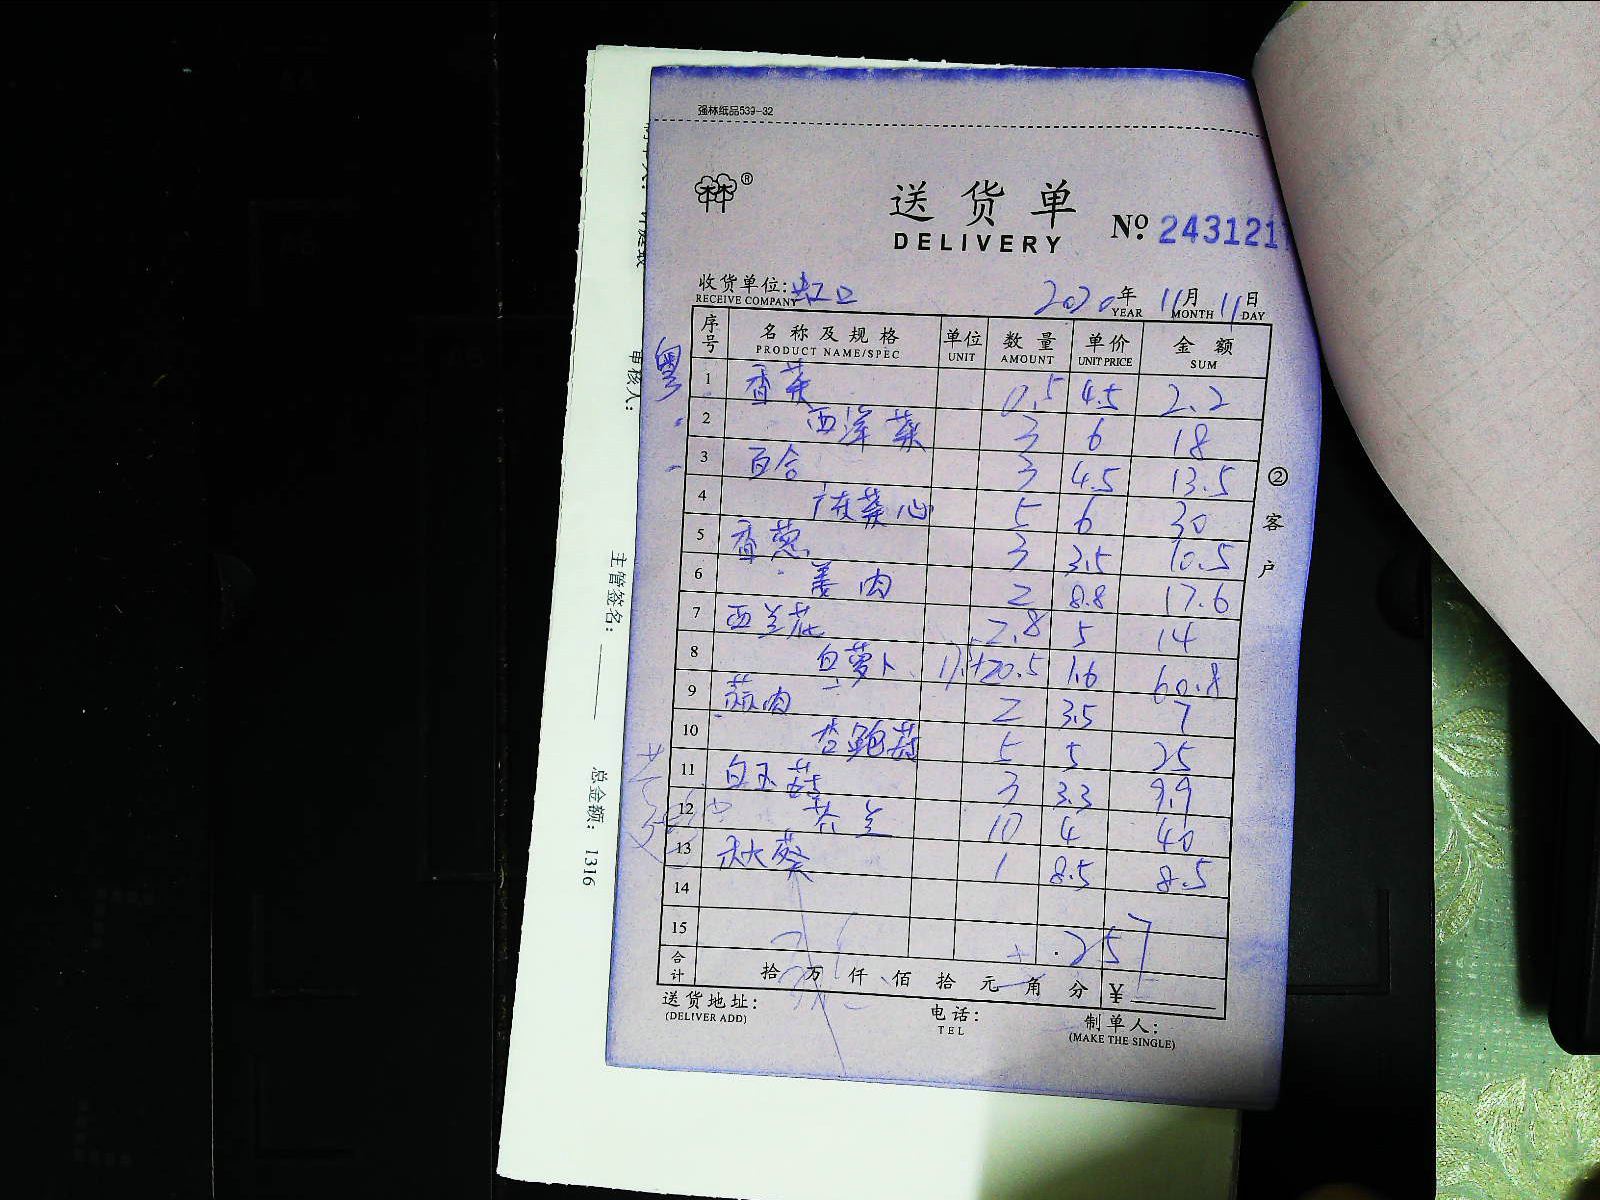 强林纸品539-32
送货单
DELIVERY
No. 2431217
收货单位: 虹口 2020年 11月 11日
RECEIVE COMPANY YEAR MONTH DAY
序号 名称及规格 单位 数量 单价 金额
PRODUCT NAME/SPEC UNIT AMOUNT UNIT PRICE SUM
粤
1 香菜 0.5 4.5 2.2
2 西洋菜 3 6 18
3 百合 3 4.5 13.5
4 广东菜心 5 6 30
5 香葱 3 3.5 10.5
6 姜肉 2 8.8 17.6
7 西兰花 2.8 5 14
8 白萝卜 +20.5 1.6 60.8
9 蒜肉 2 3.5 7
10 杏鲍菇 5 5 25
11 白玉菇 3 3.3 9.9
12 芥兰 10 4 40
13 秋葵 1 8.5 8.5
14
15 257
合计 拾 万 仟 佰 拾 元 角 分 ¥
送货地址:
(DELIVER ADD)
电话:
TEL
制单人:
(MAKE THE SINGLE)
②客户
审核人:
主管签名:
总金额: 1316